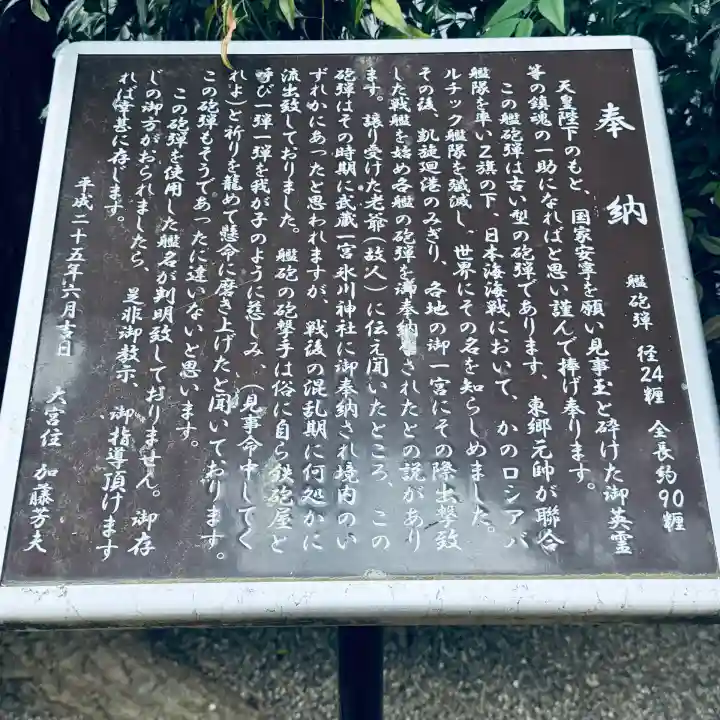 奉納
艦砲弾 径24糎 全長約90糎
天皇陛下のもと、国家安寧を願い見事玉と砕けた御英霊
等の鎮魂の一助になればと思い謹んで捧げ奉ります。
この艦砲弾は古い型の砲弾であります、東郷元帥が聯合
艦隊を率いZ旗の下、日本海海戦において、かのロシアバ
ルチック艦隊を殲滅し、世界にその名を知らしめました。
その後、凱旋廻港のみぎり、各地の御一宮にその際出撃致
した戦艦を始め各艦の砲弾を御奉納なされたとの説があり
ます。譲り受けた老爺(故人)に伝え聞いたところ、この
砲弾はその時期に武蔵一宮氷川神社に御奉納され境内のい
ずれかにあったと思われますが、戦後の混乱期に何処かに
流出致しておりました。 艦砲の砲撃手は俗に自ら鉄砲屋と
呼び一弾一弾を我が子のように慈しみ、(見事命中してく
れよ)と祈りを籠めて懸命に磨き上げたと聞いております。
この砲弾もそうであったに違いないと思います。
この砲弾を使用した艦名が判明致しておりません。御存
じの御方がおられましたら、是非御教示、御指導頂けます
れば幸甚に存じます。
平成二十五年六月吉日 大宮住 加藤芳夫